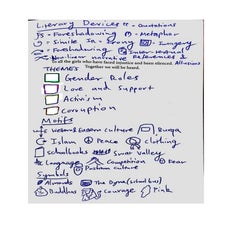 Literary Devices " " = Quotations
FS = Foreshadowing ! = Metaphor
= Simile Ia = Irony = Imagery
= Foreshadowing = Intertextual
= Non-linear narrative References &
to all the girls who have faced injustice and been silenced. Allusions
Together we will be heard.
THEMES
Gender Roles
Love and Support
Activism
Corruption
Motifs
Western & Eastern Culture Burqa
Islam Peace clothing
Schoolbooks Swat Valley
Language Competition Fear
Pashtun Culture
Symbols
Almonds The Dyna (school bus)
Buddhas Courage Pink